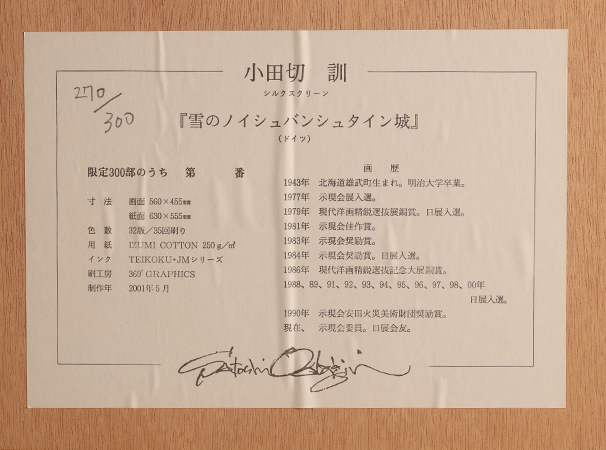 小田切　訓
シルクスクリーン
270/300
『雪のノイシュバンシュタイン城』
(ドイツ)
限定300部のうち　第　　　番
寸　法　画面 560×455㎜
紙面 630×555㎜
色　数　32版／35回刷り
用　紙　IZUMI COTTON 250g/㎡
インク　TEIKOKU・JMシリーズ
刷工房　360°GRAPHICS
制作年　2001年5月
画　歴
1943年　北海道雄武町生まれ。明治大学卒業。
1977年　示現会展入選。
1979年　現代洋画精鋭選抜展銅賞。日展入選。
1981年　示現会佳作賞。
1983年　示現会奨励賞。
1984年　示現会奨励賞。日展入選。
1986年　現代洋画精鋭選抜記念大展銅賞。
1988、89、91、92、93、94、95、96、97、98、00年
日展入選。
1990年　示現会安田火災美術財団奨励賞。
現在、　示現会委員。日展会友。